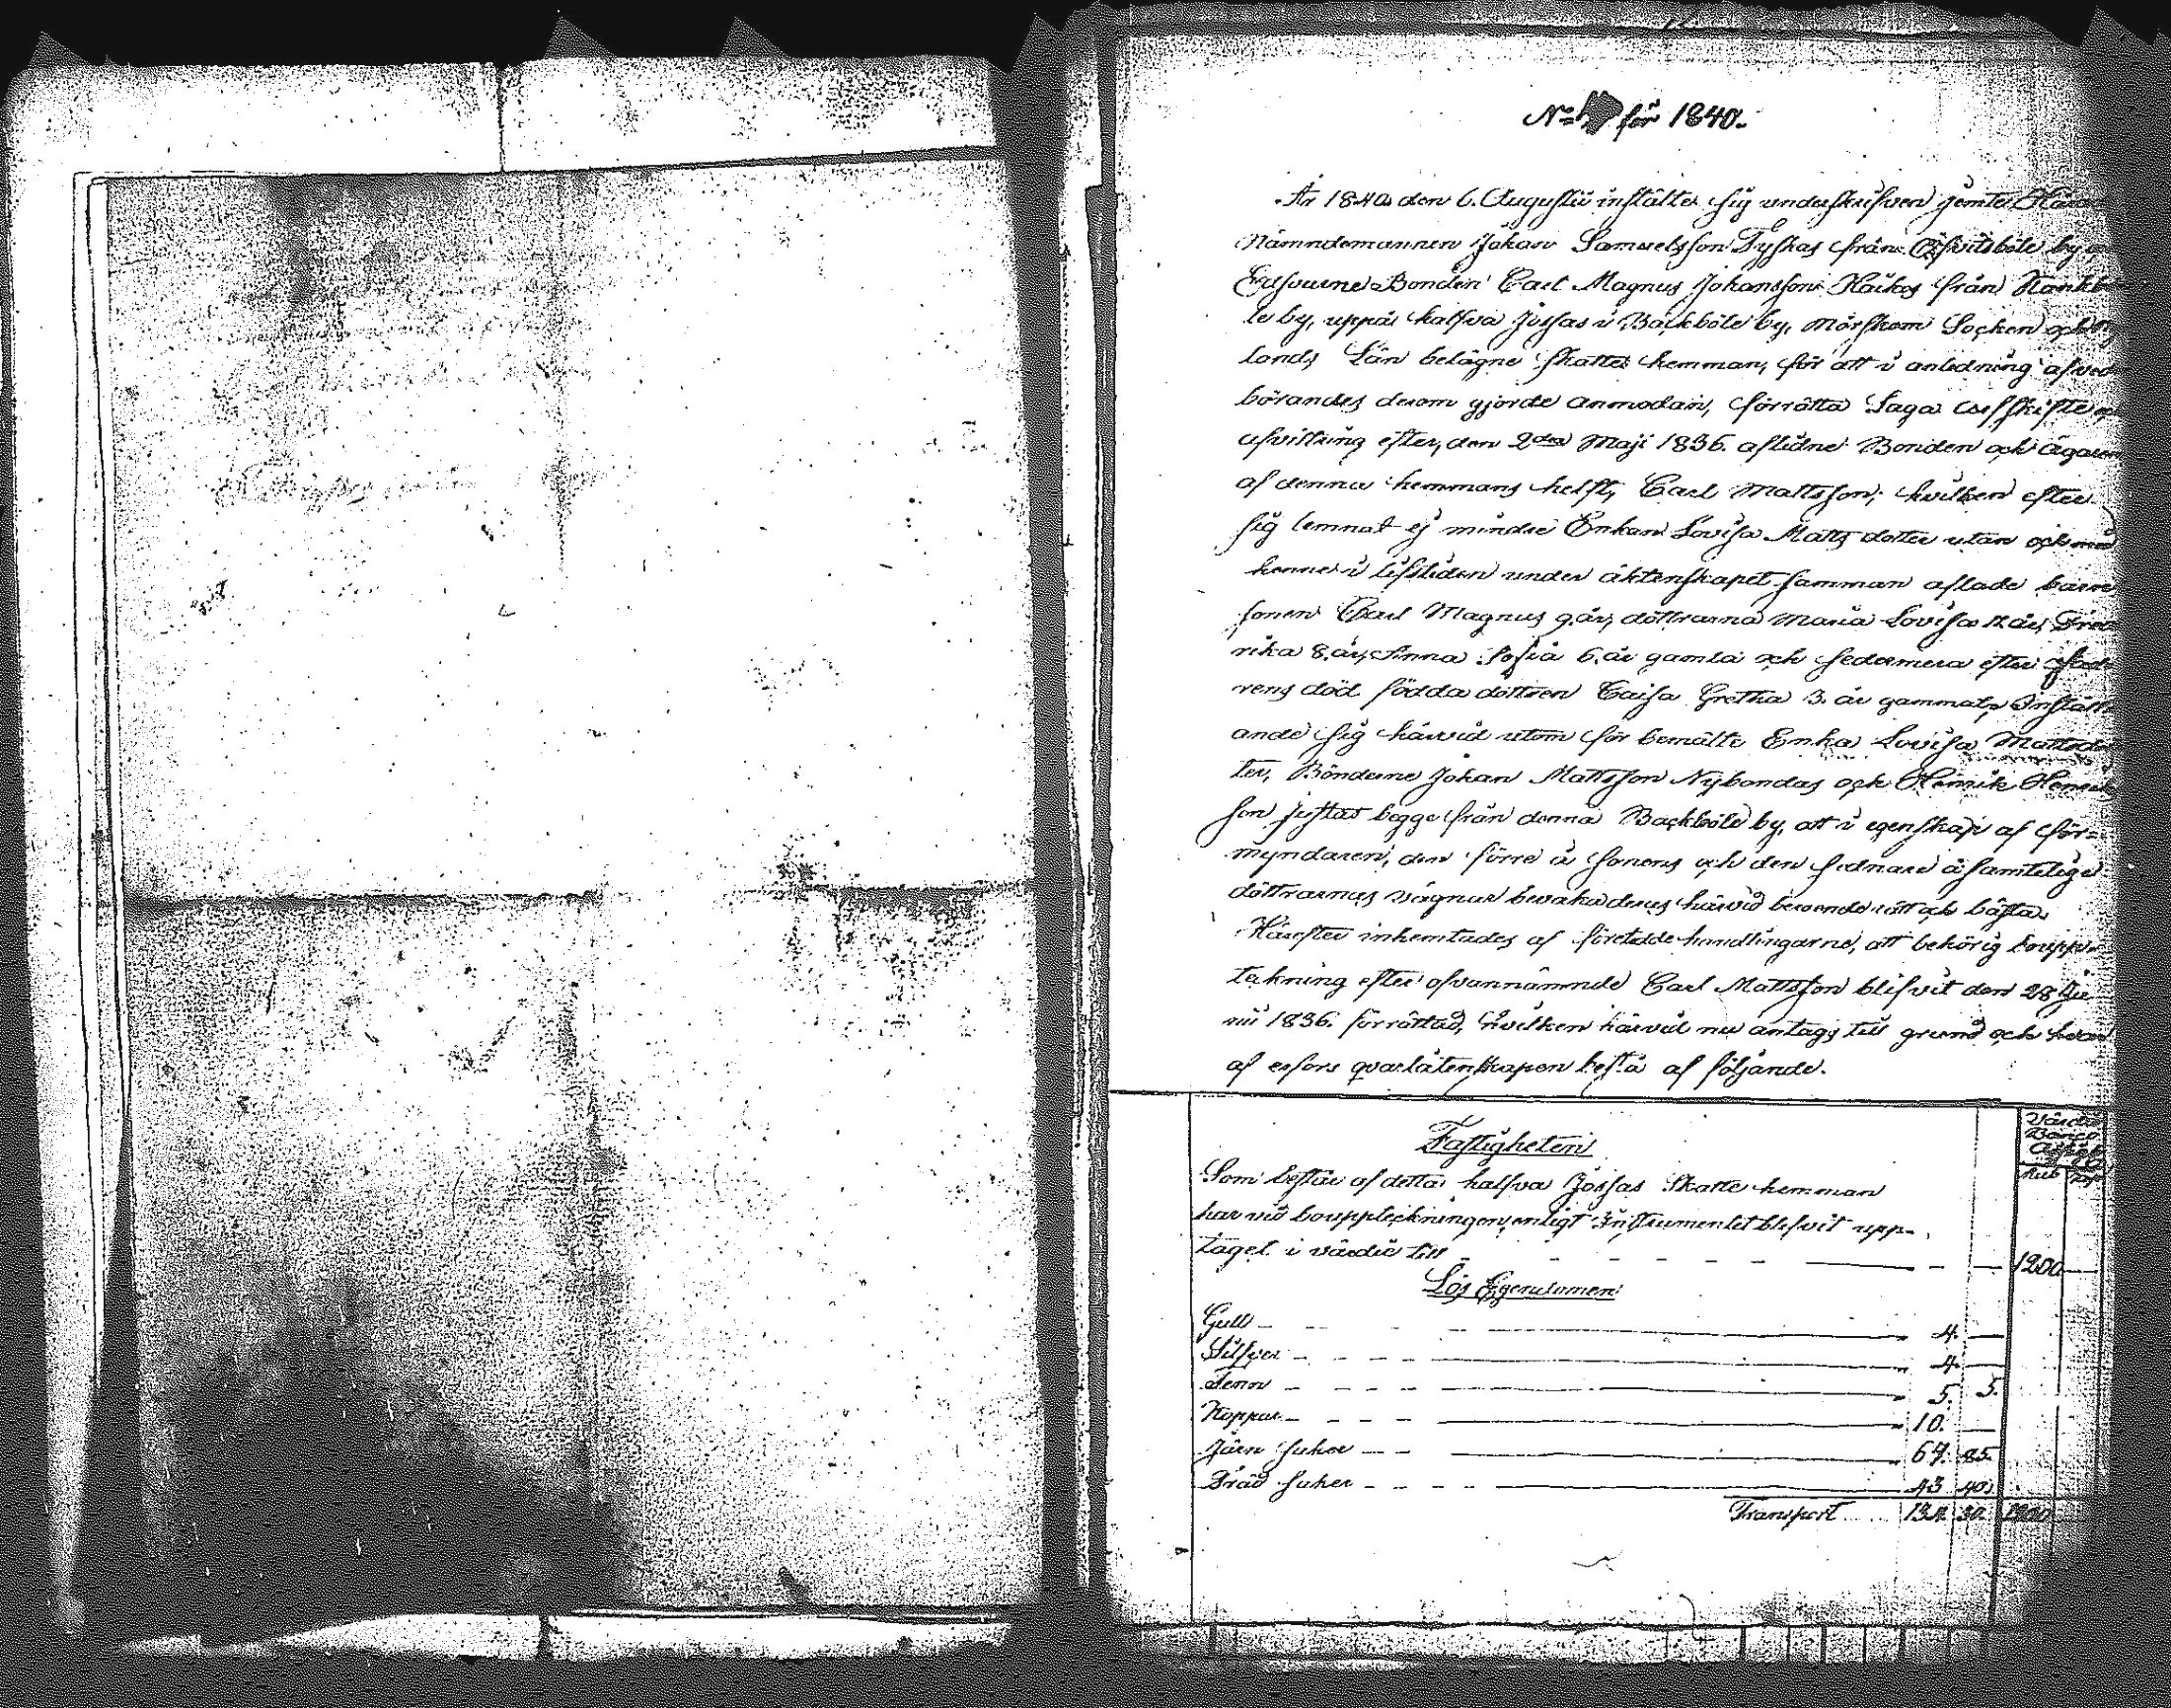 N:o för 1840.
År 1840 den 6. Augusti instälte sig underskrifven jemte
Nämndemannen Johan Samuelsson Tyskas från by
Bonden Carl Magnus Johansson från
le by, uppå halfva Jossas i Backböle by, Mörskom Socken och
lands Län belägne skatte hemman, för att i anledning af ved
börandes derom gjorde anmodan, förrätta Laga arfskifte
afvittring efter, den 2den Maji 1836. aflidne Bonden och ägaren
af denna hemmans helft, Carl Mattsson, hvilken efter
sig lemnat ej mindre Enkan Lovisa Matts dotter utan och med
henne i lifstiden under äktenskapet samman aflade barn
sonen Carl Magnus 9. år, döttrarna Maria Lovisa 12 år, Fred
rika 8. år, Anna Sofia 6. år gamla och sedermera efter fad
rens död födda dottren Caisa Gretha 3. år gammal, Inställ
ande sig härvid utom förbemälte Enka Lovisa Mattsdot
ter, Bönderne Johan Mattsson Nybondas och Henrik Henriks
son Justas begge från denna Backböle by, att i egenskap af för-
myndaren, den förre å sonens och den sednare å samtelige
döttrarnas vägnar bevaka deras härvid beroende rätt och bästa.
Härefter inhemtades af företedde handlingarne, att behörig bouppt-
teckning efter ofvannämnde Carl Mattsson blifvit den 28 Ju
nii 1836. förrättad, hvilken härvid nu antags till grund och hvar
af erfors qvarlåtenskapen bestå af följande.
Fastigheten
Som består af detta halfva Jossas Skatte hemman
har vid bouppteckningen, enligt Instrumentet blifvit upp-
taget i värde till 1200 —
Lös Egendomen
Gull 4. —
Silfver 4. —
Tenn 5. 5.
Koppar 10. —
Järn saker 67. 85.
Träd saker 43 40.
Transport 134 30 1200